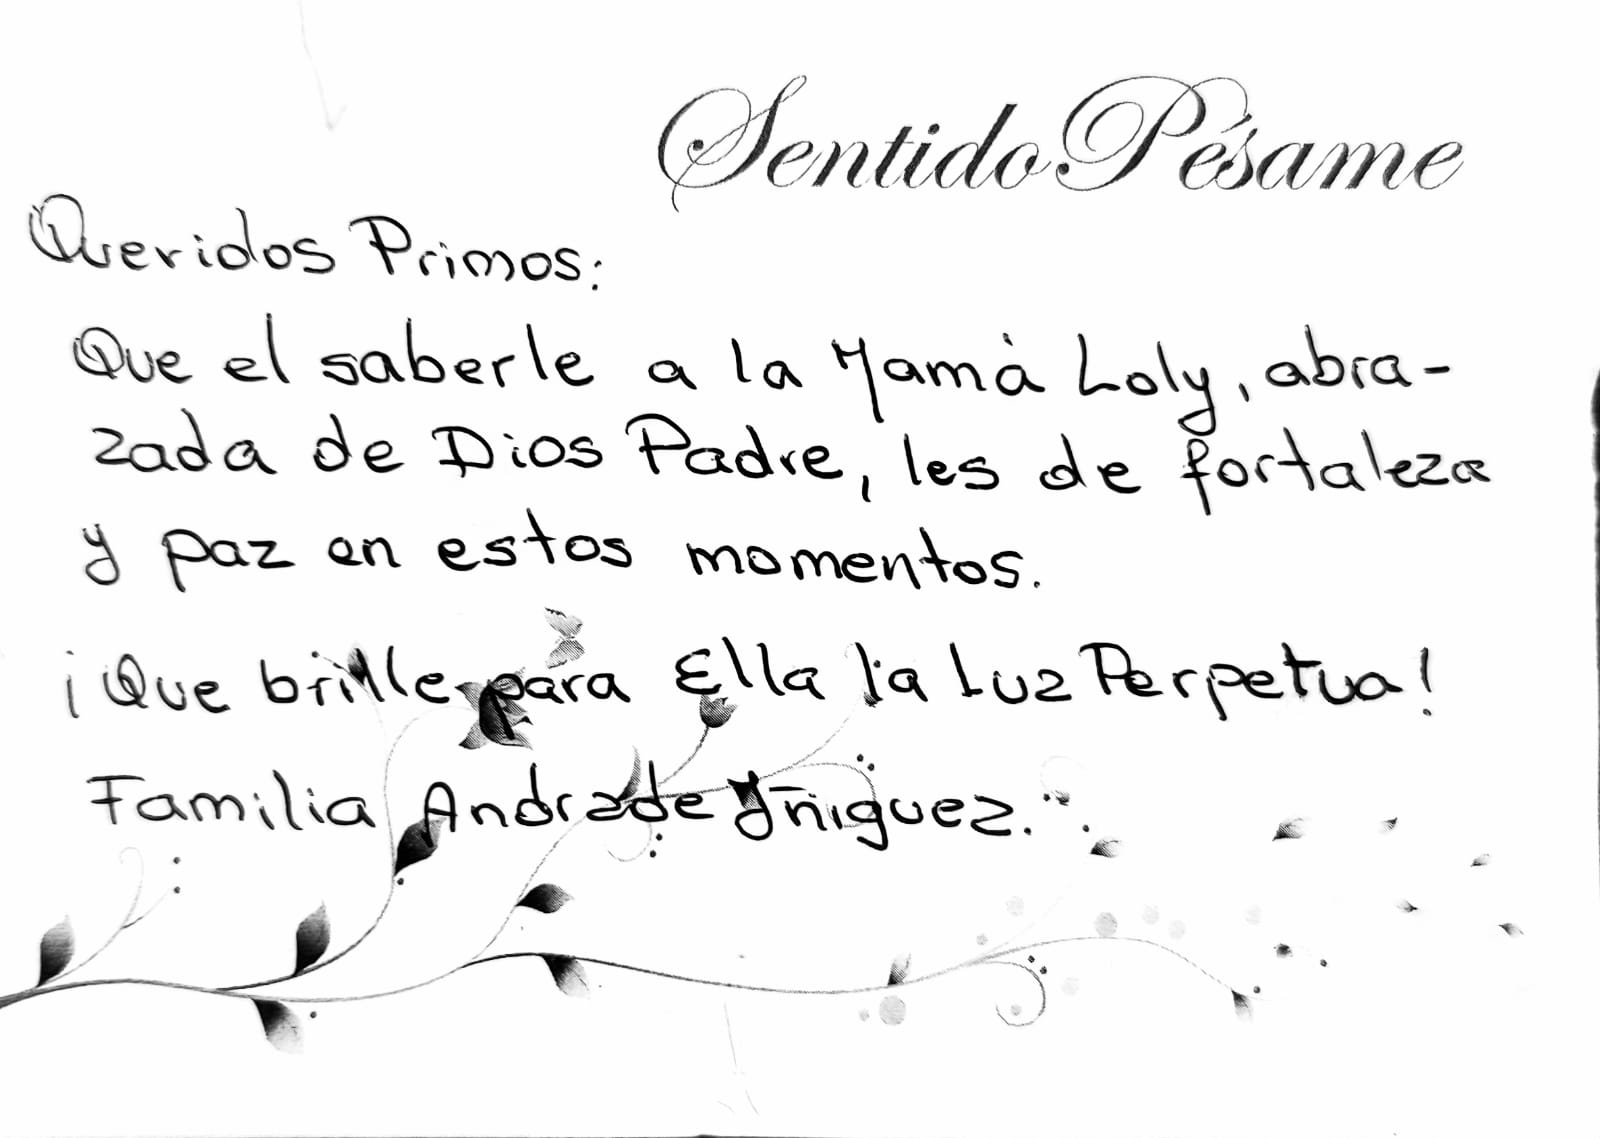 Sentido Pésame
Queridos Primos:
Que el saberle a la Mamá Loly, abra-
zada de Dios Padre, les de fortaleza
y paz en estos momentos.
¡Que brille para Ella la Luz Perpetua!
Familia Andrade Yñiguez.